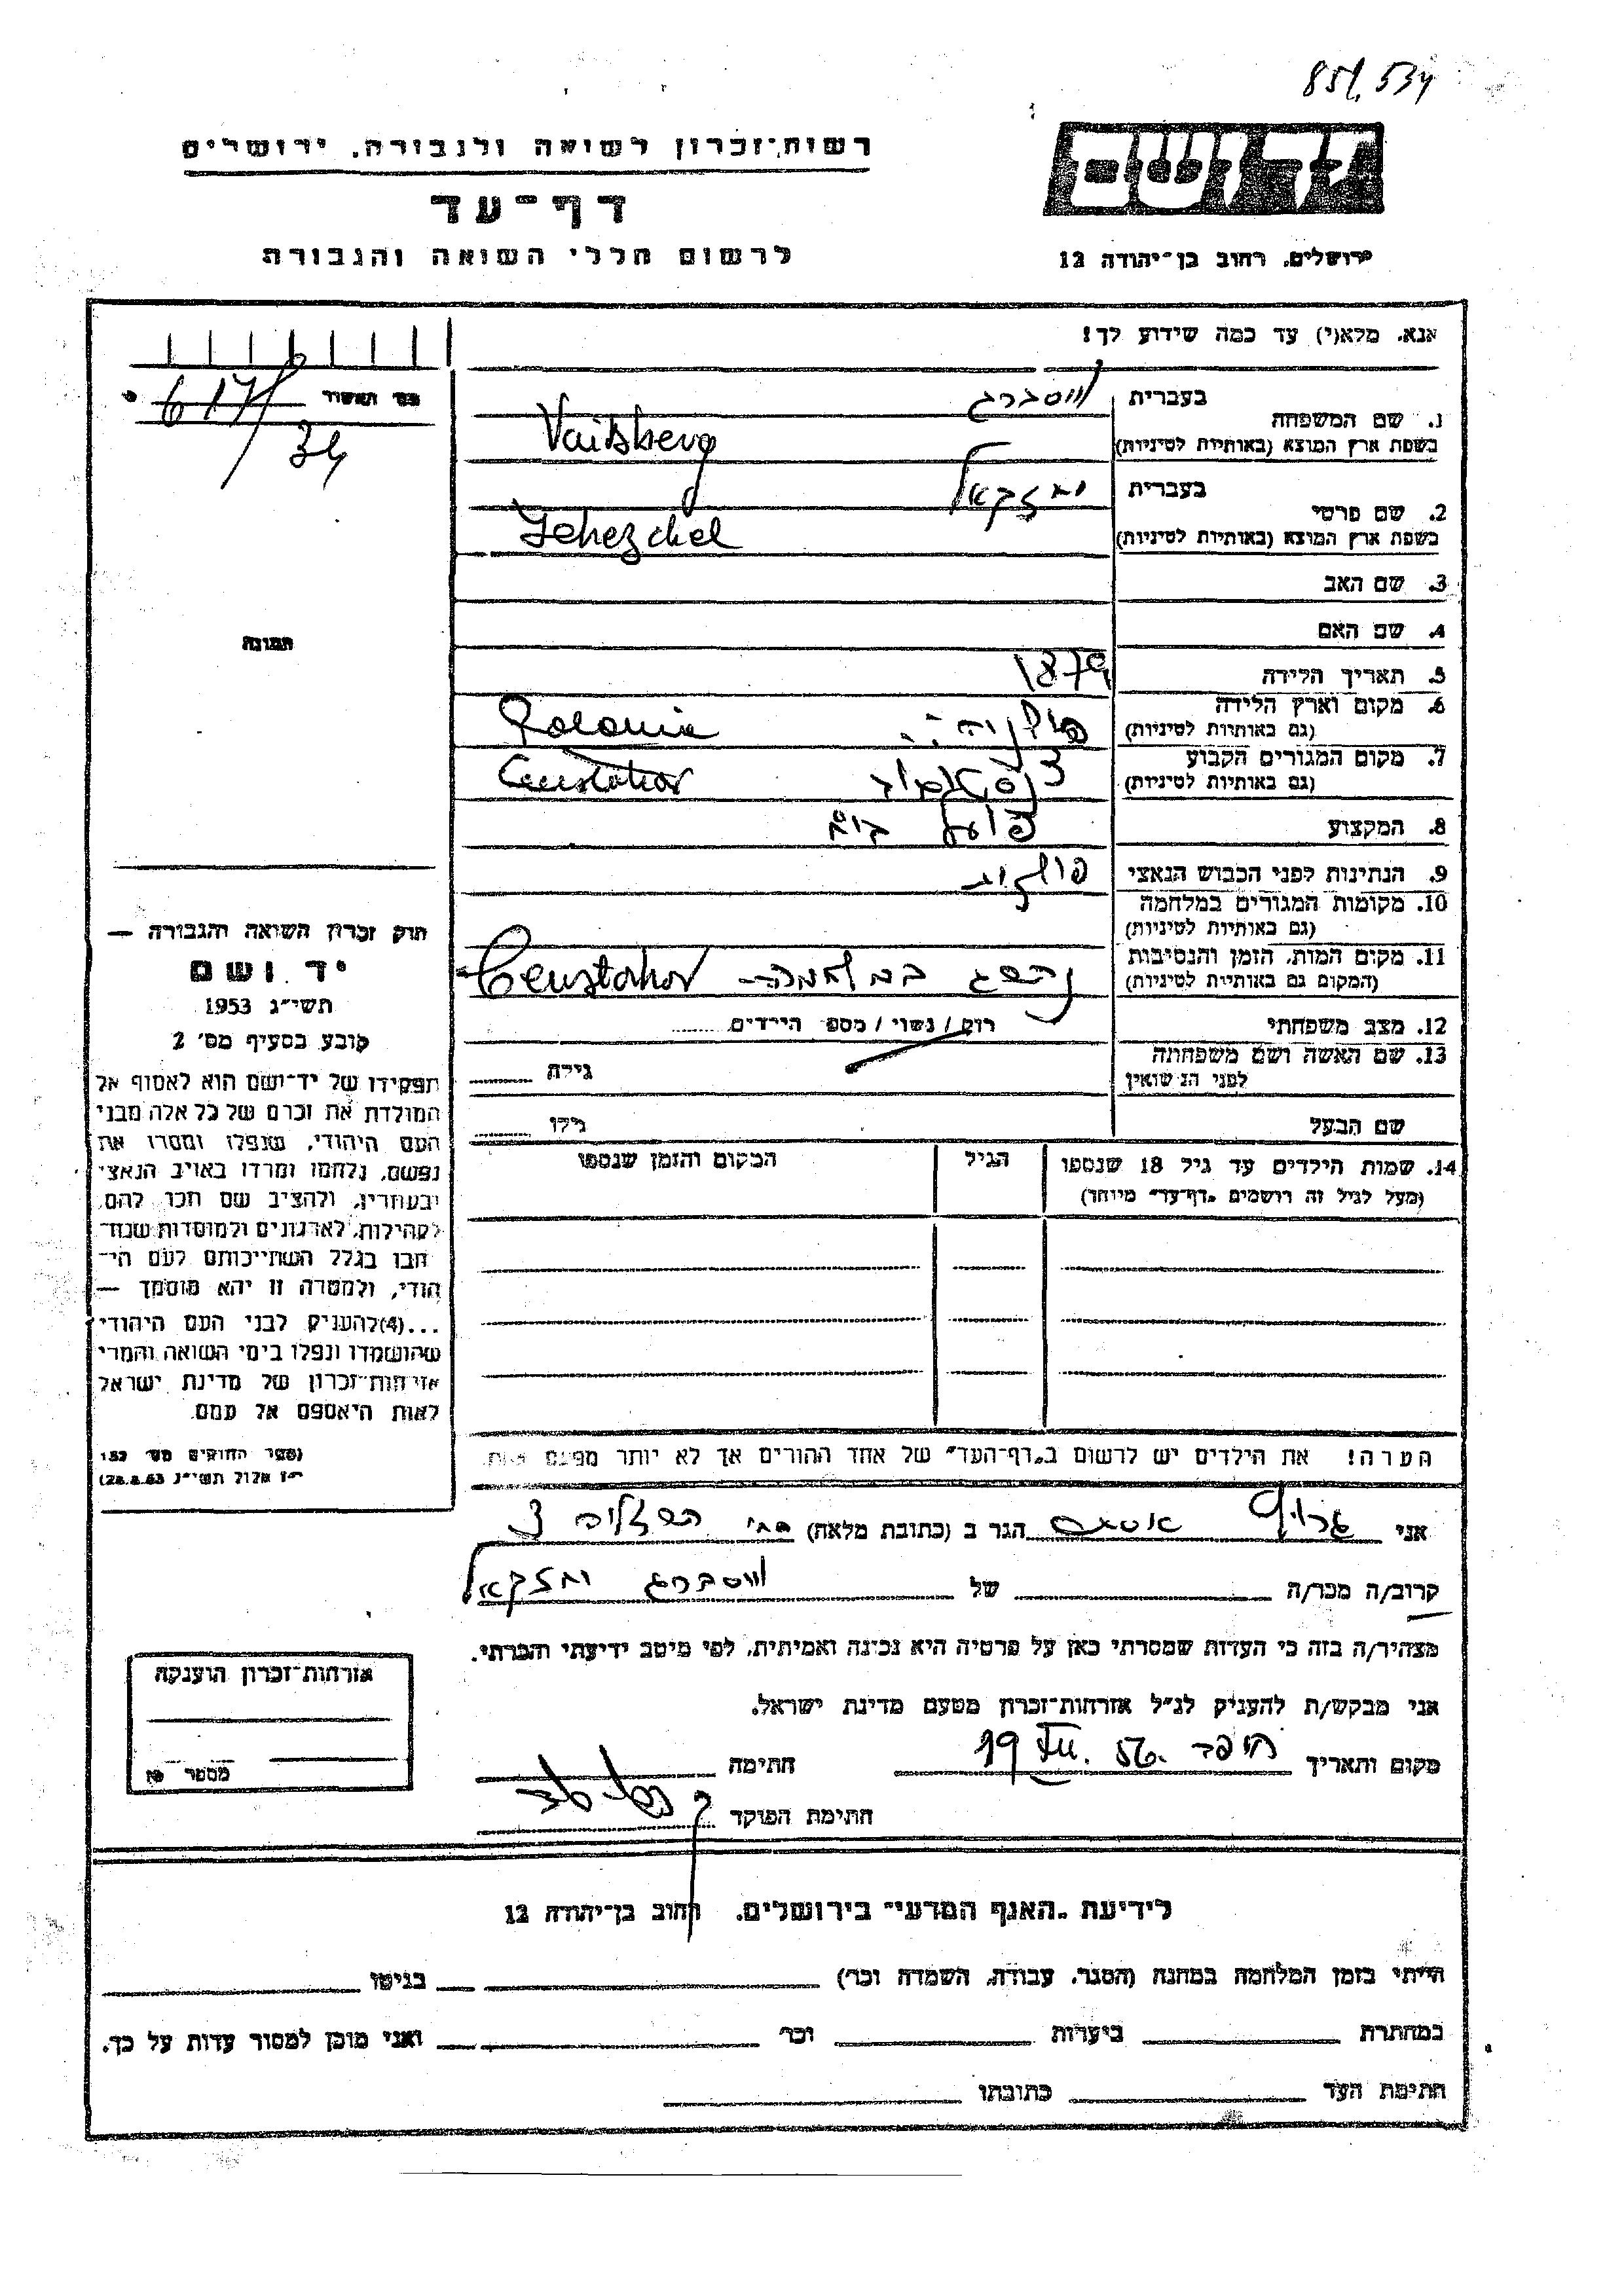 851,534
רשות־זכרון לשואה ולגבורה, ירושלים
דף־עד
לרשום חללי השואה והגבורה
ידושם
ירושלים, רחוב בן־יהודה 12
אנא, מלא(י) עד כמה שידוע לך!
617/34
1. שם המשפחה
בעברית ווסברג
בשפת ארץ המוצא (באותיות לטיניות) Vaitsberg
2. שם פרטי
בעברית יחזקאל
בשפת ארץ המוצא (באותיות לטיניות) Jehezchel
3. שם האב
4. שם האם
5. תאריך הלידה 1879
6. מקום וארץ הלידה
(גם באותיות לטיניות) Polonia
7. מקום המגורים הקבוע
(גם באותיות לטיניות) Censtohov
8. המקצוע פועל
9. הנתינות לפני הכבוש הנאצי
10. מקומות המגורים במלחמה
(גם באותיות לטיניות)
11. מקום המות, הזמן והנסיבות
(המקום גם באותיות לטיניות) נהרג במלחמה Censtohov
12. מצב משפחתי רוק / נשוי / מספר הילדים
13. שם האשה ושם משפחתה
לפני הנישואין גילה
שם הבעל גילו
14. שמות הילדים עד גיל 18 שנספו הגיל המקום והזמן שנספו
(מעל לגיל זה רושמים „דף־עד" מיוחד)
הערה! את הילדים יש לרשום ב„דף־העד" של אחד ההורים אך לא יותר מפעם אחת.
תמונה
חוק זכרון השואה והגבורה —
יד ושם
תשי״ג 1953
קובע בסעיף מס' 2
תפקידו של יד־ושם הוא לאסוף אל
המולדת את זכרם של כל אלה מבני
העם היהודי, שנפלו ומסרו את
נפשם, נלחמו ומרדו באויב הנאצי
ובעוזריו, ולהציב שם וזכר להם,
לקהילות, לארגונים ולמוסדות שנח־
רבו בגלל השתייכותם לעם הי־
הודי, ולמטרה זו יהא מוסמך —
...(4) להעניק לבני העם היהודי
שהושמדו ונפלו בימי השואה והמרי
אזרחות־זכרון של מדינת ישראל
לאות היאספם אל עמם.
(ספר החוקים מס' 132
י״ז אלול תשי״ג 28.8.53)
אני הגר ב (כתובת מלאה)
קרוב/ה מכר/ה של ווסברג יחזקאל
מצהיר/ה בזה כי העדות שמסרתי כאן על פרטיה היא נכונה ואמיתית, לפי מיטב ידיעתי והכרתי.
אני מבקש/ת להעניק לנ״ל אזרחות־זכרון מטעם מדינת ישראל.
מקום ותאריך 19 XII. 56. חיפה חתימה
חתימת הפוקד
אזרחות־זכרון הוענקה
מספר
לידיעת „האגף המדעי" בירושלים, רחוב בן־יהודה 12
הייתי בזמן המלחמה במחנה (הסגר, עבודה, השמדה וכו') בגיטו
במחתרת ביערות וכו' ואני מוכן למסור עדות על כך.
חתימת העד כתובתו